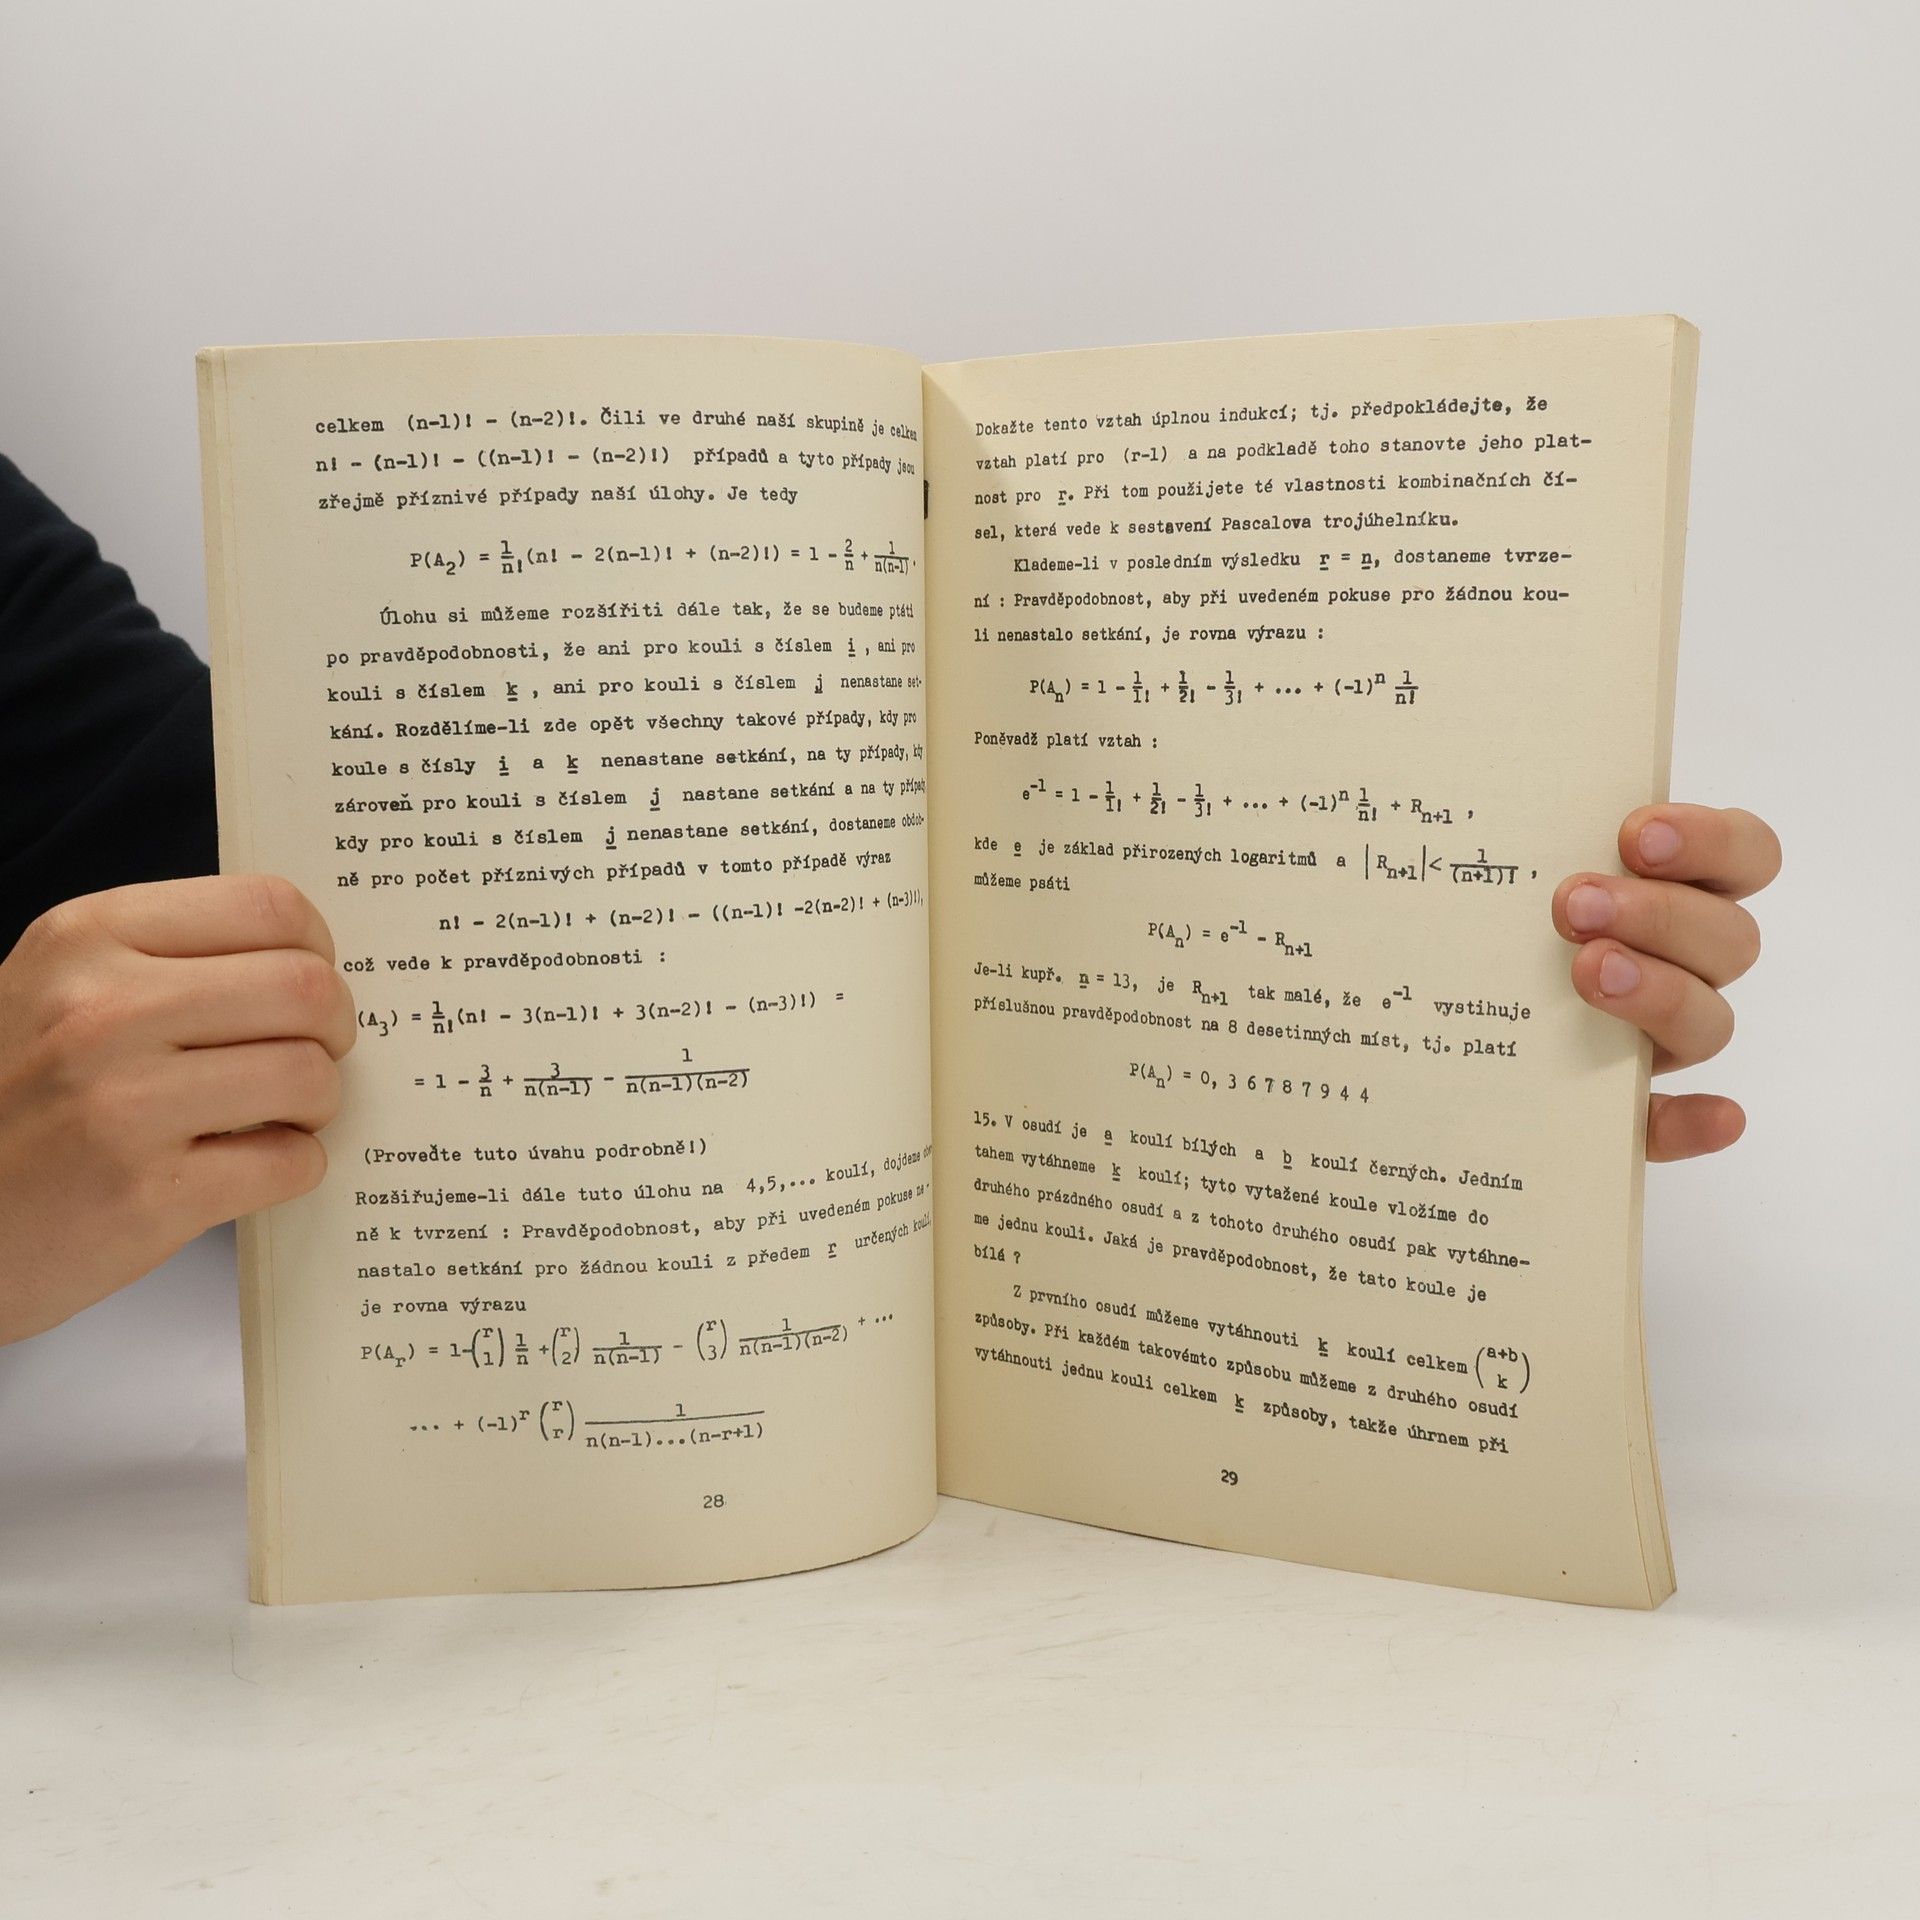 celkem (n-1)! - (n-2)!. Čili ve druhé naší skupině je celkem
n! - (n-1)! - ((n-1)! - (n-2)!) případů a tyto případy jsou
zřejmě příznivé případy naší úlohy. Je tedy
P(A₂) = 1/n! (n! - 2(n-1)! + (n-2)!) = 1 - 2/n + 1/n(n-1).
Úlohu si můžeme rozšířiti dále tak, že se budeme ptáti
po pravděpodobnosti, že ani pro kouli s číslem i , ani pro
kouli s číslem k , ani pro kouli s číslem j nenastane set-
kání. Rozdělíme-li zde opět všechny takové případy, kdy pro
koule s čísly i a k nenastane setkání, na ty případy, kdy
zároveň pro kouli s číslem j nastane setkání a na ty případy
kdy pro kouli s číslem j nenastane setkání, dostaneme obdob-
ně pro počet příznivých případů v tomto případě výraz
n! - 2(n-1)! + (n-2)! - ((n-1)! -2(n-2)! + (n-3)!),
což vede k pravděpodobnosti :
(A₃) = 1/n! (n! - 3(n-1)! + 3(n-2)! - (n-3)!) =
= 1 - 3/n + 3/n(n-1) - 1/n(n-1)(n-2)
(Proveďte tuto úvahu podrobně!)
Rozšiřujeme-li dále tuto úlohu na 4,5,... koulí, dojdeme
ně k tvrzení : Pravděpodobnost, aby při uvedeném pokuse ne-
nastalo setkání pro žádnou kouli z předem r určených koulí,
je rovna výrazu
P(Aᵣ) = 1-(r 1) 1/n +(r 2) 1/n(n-1) - (r 3) 1/n(n-1)(n-2) + ...
... + (-1)ʳ (r r) 1/n(n-1)...(n-r+1)
28
Dokažte tento vztah úplnou indukcí; tj. předpokládejte, že
vztah platí pro (r-1) a na podkladě toho stanovte jeho plat-
nost pro r. Při tom použijete té vlastnosti kombinačních čí-
sel, která vede k sestavení Pascalova trojúhelníku.
Klademe-li v posledním výsledku r = n, dostaneme tvrze-
ní : Pravděpodobnost, aby při uvedeném pokuse pro žádnou kou-
li nenastalo setkání, je rovna výrazu :
P(Aₙ) = 1 - 1/1! + 1/2! - 1/3! + ... + (-1)ⁿ 1/n!
Poněvadž platí vztah :
e⁻¹ = 1 - 1/1! + 1/2! - 1/3! + ... + (-1)ⁿ 1/n! + Rₙ₊₁ ,
kde e je základ přirozených logaritmů a |Rₙ₊₁| < 1/(n+1)! ,
můžeme psáti
P(Aₙ) = e⁻¹ - Rₙ₊₁
Je-li kupř. n = 13, je Rₙ₊₁ tak malé, že e⁻¹ vystihuje
příslušnou pravděpodobnost na 8 desetinných míst, tj. platí
P(Aₙ) = 0, 3 6 7 8 7 9 4 4
15. V osudí je a koulí bílých a b koulí černých. Jedním
tahem vytáhneme k koulí; tyto vytažené koule vložíme do
druhého prázdného osudí a z tohoto druhého osudí pak vytáhne-
me jednu kouli. Jaká je pravděpodobnost, že tato koule je
bílá ?
Z prvního osudí můžeme vytáhnouti k koulí celkem (a+b k)
způsoby. Při každém takovémto způsobu můžeme z druhého osudí
vytáhnouti jednu kouli celkem k způsoby, takže úhrnem při
29